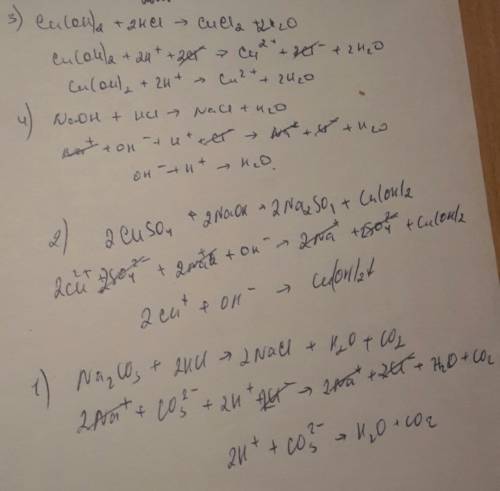 3) Cu(OH)2 + 2HCl → CuCl2 + 2H2O
Cu(OH)2 + 2H⁺ + 2Cl⁻ → Cu²⁺ + 2Cl⁻ + 2H2O
Cu(OH)2 + 2H⁺ → Cu²⁺ + 2H2O
4) NaOH + HCl → NaCl + H2O
Na⁺ + OH⁻ + H⁺ + Cl⁻ → Na⁺ + Cl⁻ + H2O
OH⁻ + H⁺ → H2O.
2) 2CuSO4 + 2NaOH → 2Na2SO4 + Cu(OH)2
2Cu²⁺ + 2SO4²⁻ + 2Na⁺ + OH⁻ → 2Na⁺ + SO4²⁻ + Cu(OH)2
2Cu⁺ + OH⁻ → Cu(OH)2↓
1) Na2CO3 + 2HCl → 2NaCl + H2O + CO2
2Na⁺ + CO3²⁻ + 2H⁺ + 2Cl⁻ → 2Na⁺ + 2Cl⁻ + H2O + CO2
2H⁺ + CO3²⁻ → H2O + CO2